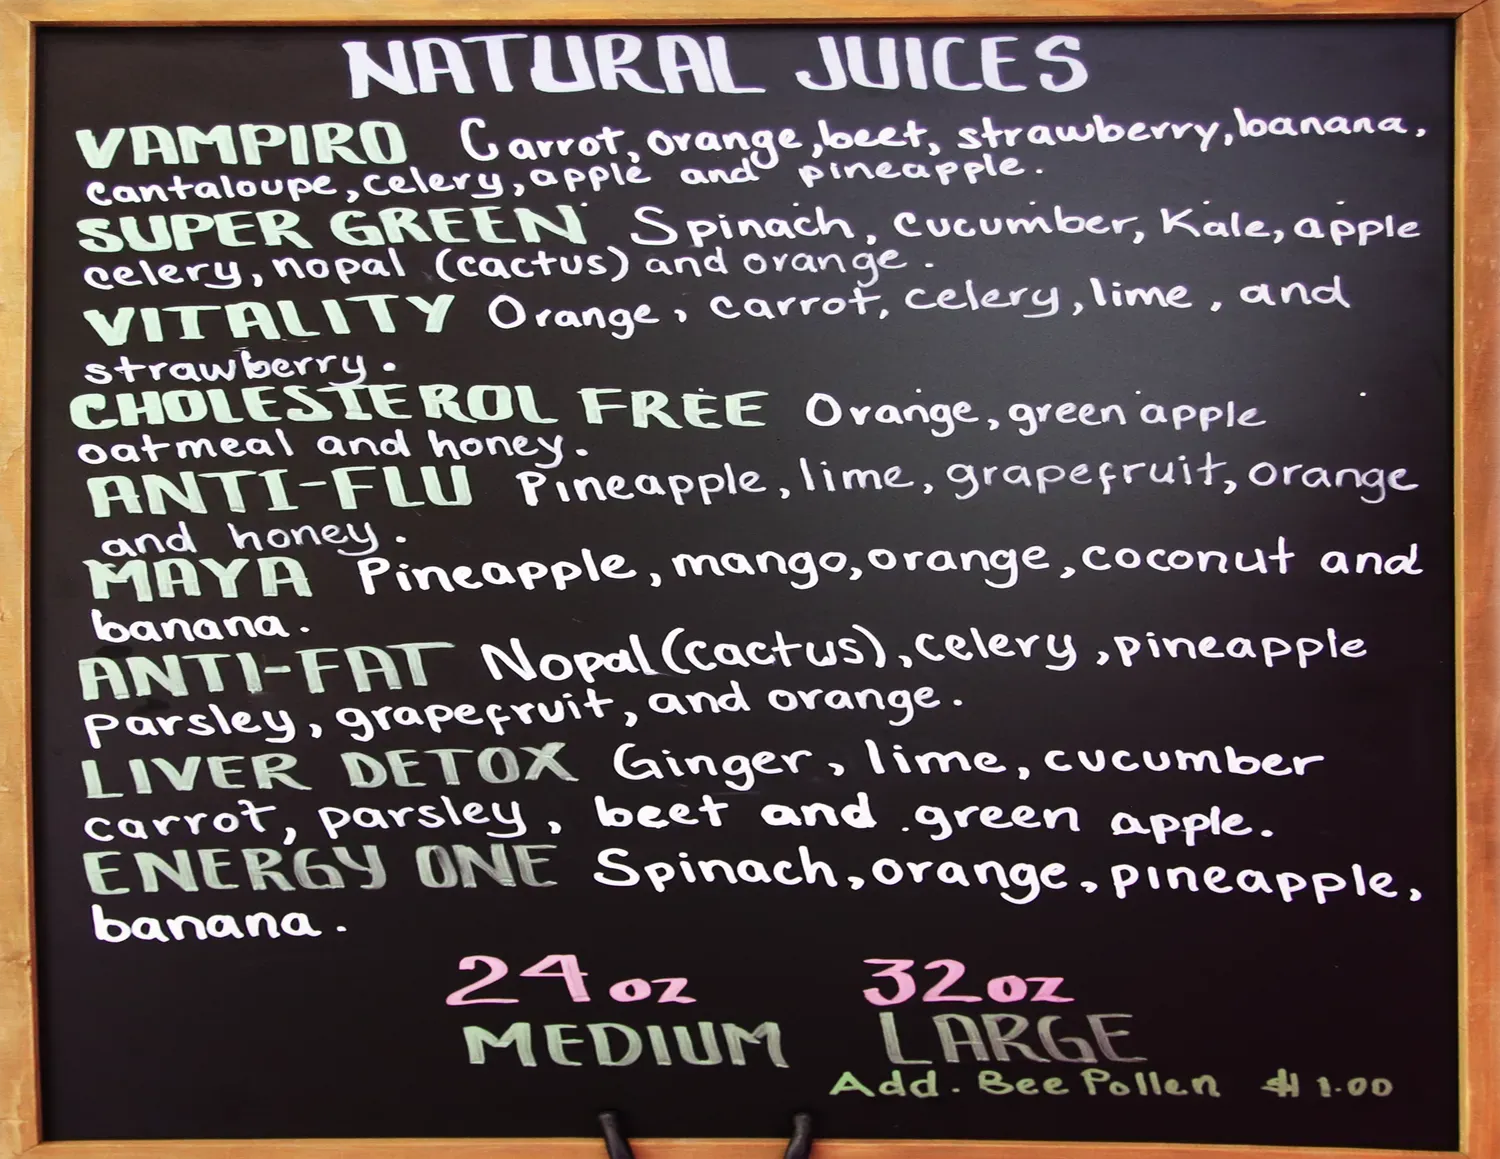 NATURAL JUICES
VAMPIRO Carrot, orange, beet, strawberry, banana,
cantaloupe, celery, apple and pineapple.
SUPER GREEN Spinach, cucumber, Kale, apple
celery, nopal (cactus) and orange.
VITALITY Orange, carrot, celery, lime, and
strawberry.
CHOLESTEROL FREE Orange, green apple
oatmeal and honey.
ANTI-FLU Pineapple, lime, grapefruit, orange
and honey.
MAYA Pineapple, mango, orange, coconut and
banana.
ANTI-FAT Nopal (cactus), celery, pineapple
parsley, grapefruit, and orange.
LIVER DETOX Ginger, lime, cucumber
carrot, parsley, beet and green apple.
ENERGY ONE Spinach, orange, pineapple,
banana.
24oz 32oz
MEDIUM LARGE
Add. Bee Pollen $1.00